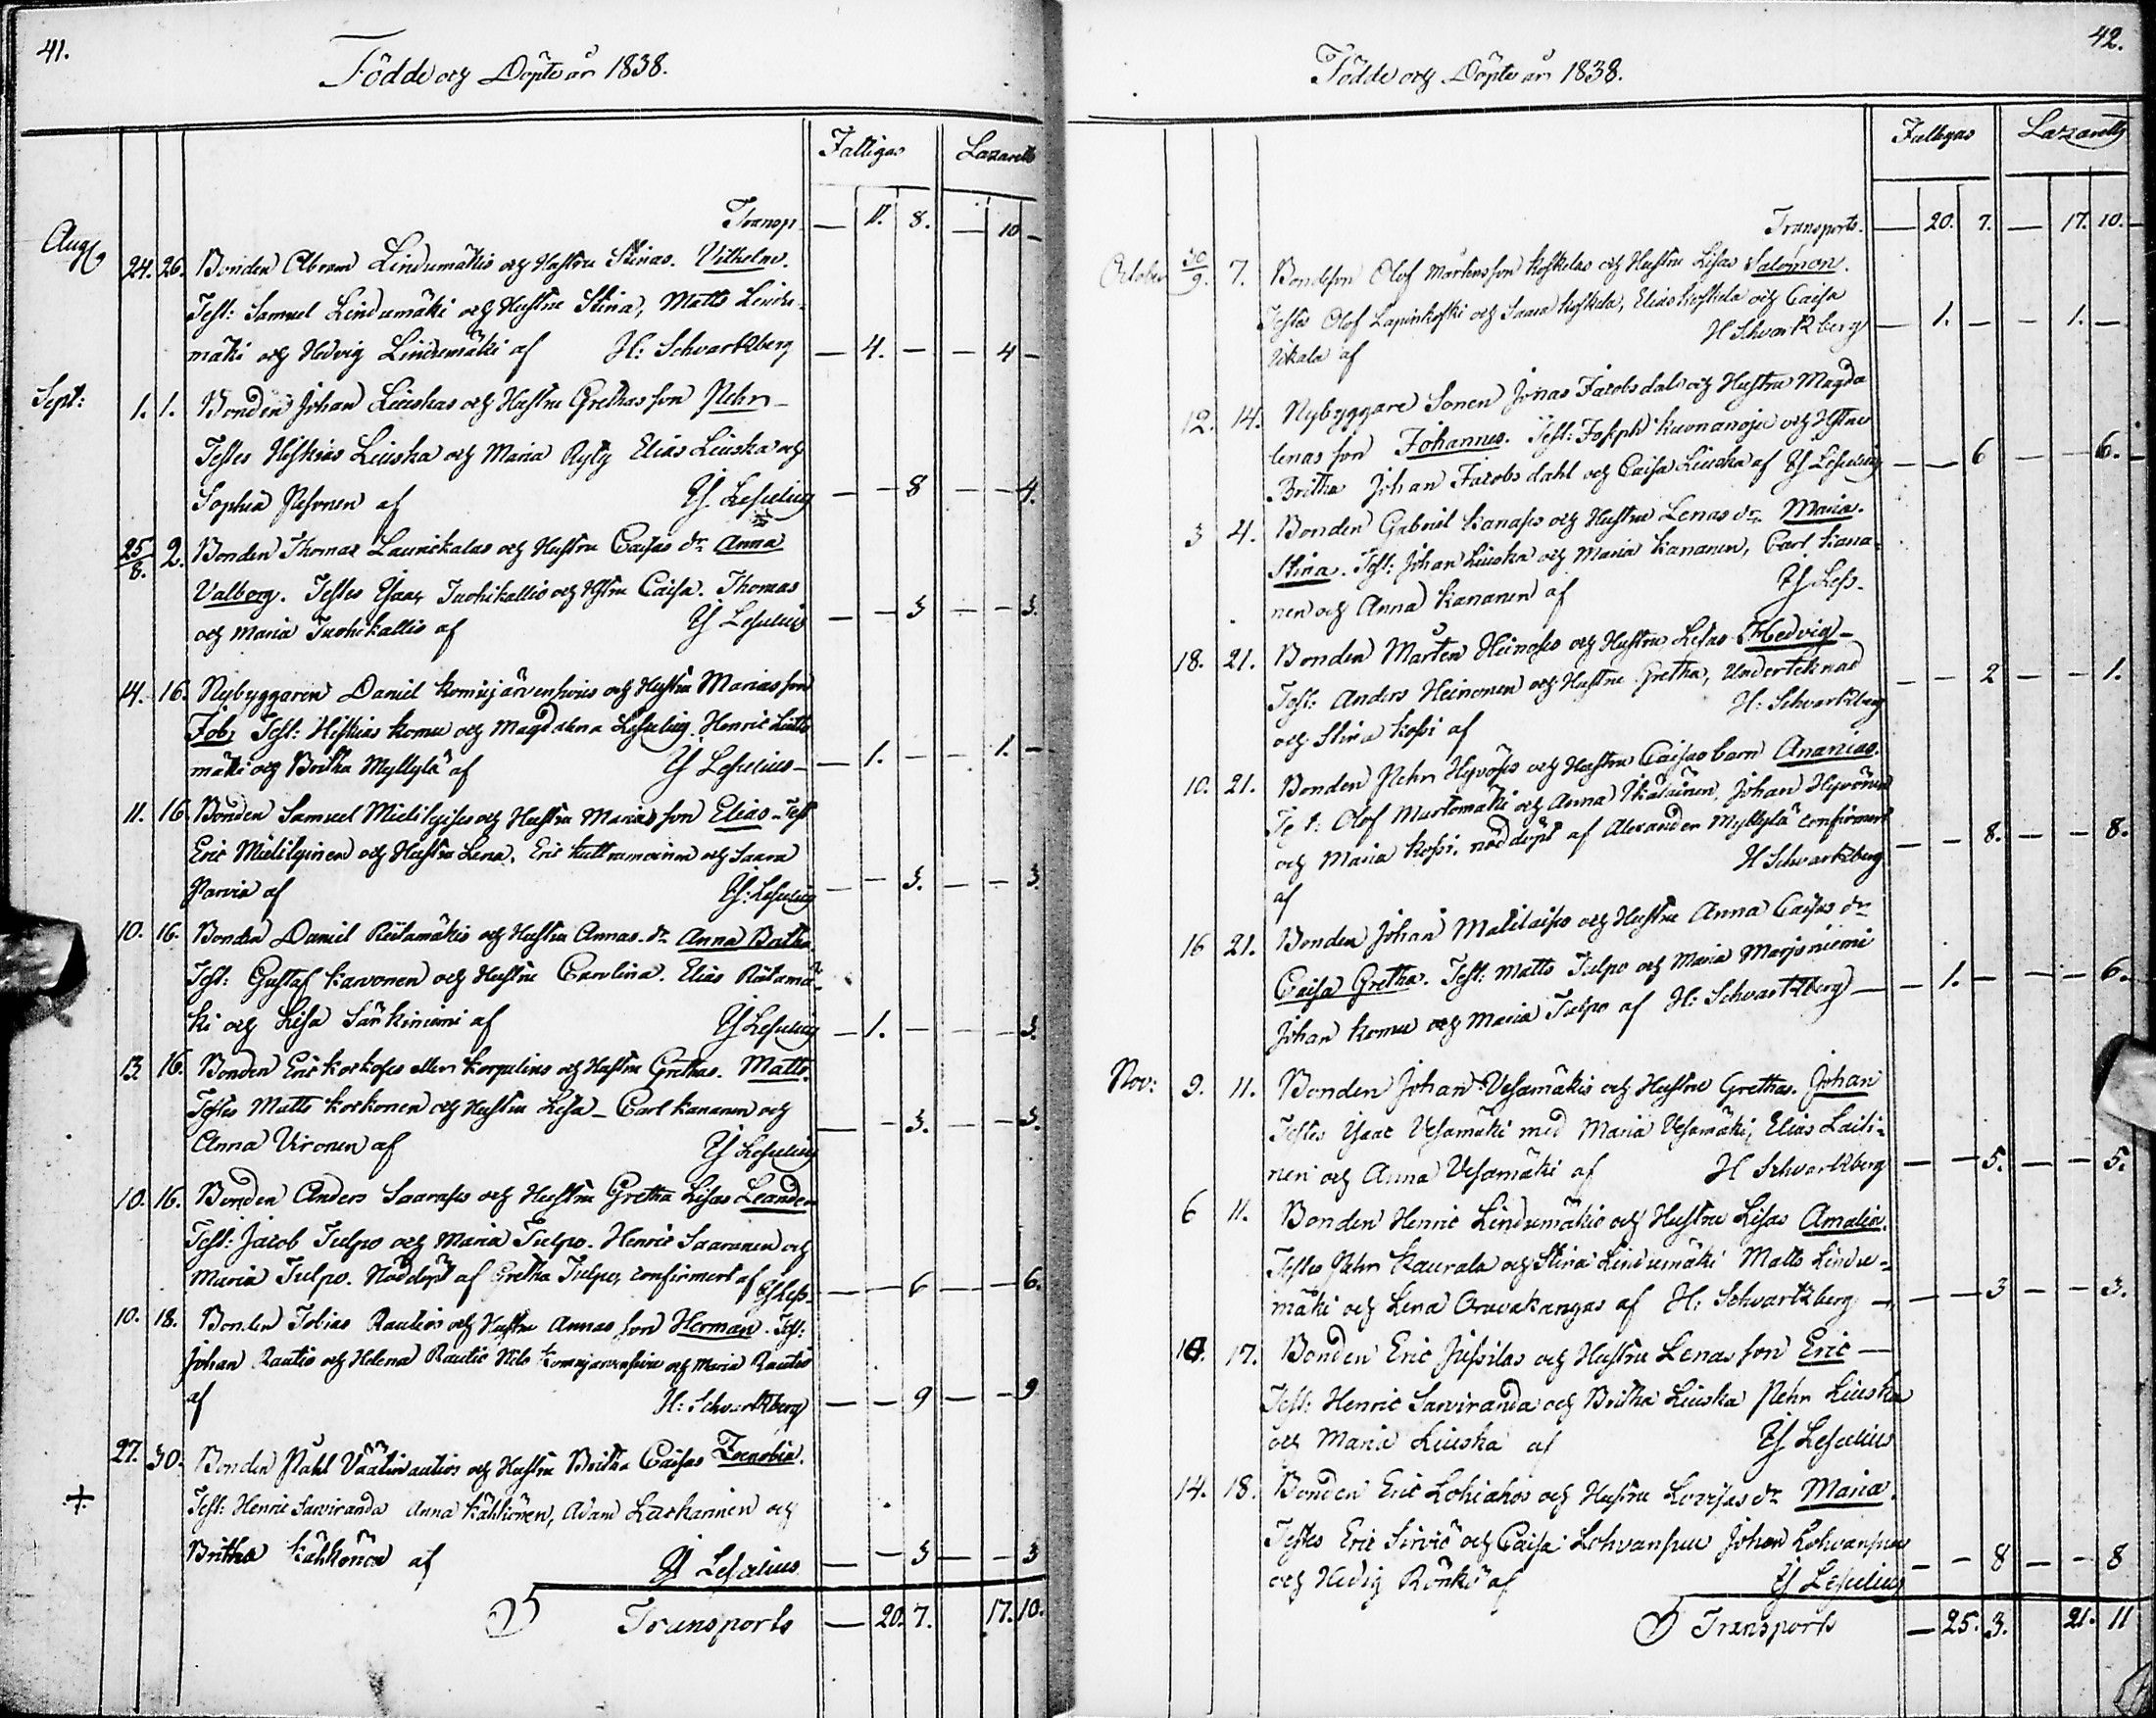 41.
Födde och Döpte år 1838.
Fattigas Lazaretts
Transp. — 11. 8. — 10 —
Aug. 24. 26. Bonden Abram Lindumäkis och Hustru Stinas. Vilhelm.
Test: Samuel Lindumäki och Hustru Stina, Matts Lindu-
mäki och Hedvig Lindumäki af H: Schvartzberg — 4. — — 4 —
Sept: 1. 1. Bonden Johan Liuskas och Hustru Grethas son Pehr —
Testes Hiskias Liuska och Maria Ryty Elias Liuska och
Sophia Pesonen af Is Lesulius — — 8 — — 4.
25/8. 2. Bonden Thomas Launikalas och Hustru Caisas dr Anna
Valborg. Testes Isaac Tuohikallio och Hstru Caisa. Thomas
och Maria Tuohikallio af Is Lesulius — — 3 — — 3.
14. 16. Nybyggaren Daniel Komujärvensivus och Hustru Marias son
Job, Test: Hiskias Komu och Magdalena Lesulius. Henric Luttomäki och Britha Myllylä af
Is Lesulius — — 1. — — 1. —
11. 16. Bonden Samuel Mielityises och Hustru Marias son Elias - Test
Eric Mielityinen och Hustru Lena. Eric och Saara
Parvia af Is: Lesulius — — 3. — — 3.
10. 16. Bonden Daniel Riitamäkis och Hustru Annas. dr Anna Britha
Test: Gustaf Karvonen och Hustru Carolina. Elias Riitamä-
ki och Lisa Särkiniemi af Is Lesulius — 1. — — — 3.
13. 16. Bonden Eric Korkoses eller Korpelins och Hustru Grethas. Matts.
Testes Matts Korkonen och Hustru Lisa — Carl Kananen och
Anna Vironen af Is Lesulius — — 3. — — 3.
10. 16. Bonden Anders Saarases och Hustru Gretha Lisas Leander
Test: Jacob Tulpo och Maria Tulpo. Henric Saaranen och
Maria Tulpo. Nöddöpt af Gretha Tulpo, confirmert af Is Les. — — 6 — — 6.
10. 18. Bonden Tobias Rautios och Hustru Annas son Herman. Test:
Johan Rautio och Helena Rautio Nils Komujärvensivu och Maria Rautio
af H: Schvartzberg — — 9 — — 9
27. 30. Bonden Påhl Väätirautios och Hustru Britha Caisas Zenobia.
+ Test: Henric Sarviranda Anna Kähkönen, Adam Laskarinen och
Britha Kähkönen af Is Lesulius — — 3 — — 3
Transports — 20. 7. 17. 10.
42.
Födde och Döpte år 1838.
Fattigas Lazaretts
Transports. — 20. 7. — 17. 10. —
October 30/9. 7. Bondeson Olof Mårtensson Koskelas och Hustru Lisas Salomon.
Testes Olof Lapinkoski och Saara Koskela, Elias Koskela och Caisa
af H Schvartzberg — 1. — — 1. —
12. 14. Nybyggare Sonen Jonas Jacobsdals och Hustru Magda
lenas son Johannes. Test: Joseph Kuonanoja och Hstru
Britha Johan Jacobsdahl och Caisa Liuska af Is Lesulius — — 6 — — 6.
3 4. Bonden Gabriel Kanases och Hustru Lenas dr. Maria
Stina. Test: Johan Liuska och Maria Kananen, Carl Kana-
nen och Anna Kananen af Is Les.
18. 21. Bonden Mårten Heinoses och Hustru Lisas Hedvig —
Test: Anders Heinonen och Hustru Gretha, Undertecknad
och Stina Kossi af H: Schvartzberg — — 2 — — 1.
10. 21. Bonden Pehr Hyvöses och Hustru Caisas barn Ananias.
Test: Olof Murtomäki och Anna Ikäläinen, Johan Hyvönen
och Maria Kossi. nöddöpt af Alexander Myllylä confirmert
af H Schvartzberg — — 8. — — 8.
16 21. Bonden Johan Matilaises och Hustru Anna Caisas dr
Caisa Gretha. Test: Matts Tulpo och Maria Marjoniemi
Johan Komu och Maria Tulpo af H: Schvartzberg — — 1. — — — 6.
Nov: 9. 11. Bonden Johan Vesamäkis och Hustru Grethas. Johan
Testes Isaac Vesamäki med Maria Vesamäki, Elias Laiti-
nen och Anna Vesamäki af H Schvartzberg — — 5. — — 5.
6 11. Bonden Henric Lindumäkis och Hustru Lisas Amalia.
Testes Pehr Kaurala och Stina Lindumäki Matts Lindu-
mäki och Lena Oravakangas af H: Schvartzberg — — — 3 — — 3.
17. Bonden Eric Jussilas och Hustru Lenas son Eric —
Test: Henric Sarviranda och Britha Liuska Pehr Liuska
och Maria Liuska af Is Lesulius
14. 18. Bonden Eric Lohiahos och Hustru Lovisas dr Maria.
Testes Eric Sirviö och Caisa Lohvansuu Johan Lohvansuu
och Hedvig Rönkö af Is Lesulius — — 8 — — 8
Transports — 25. 3. 21. 11